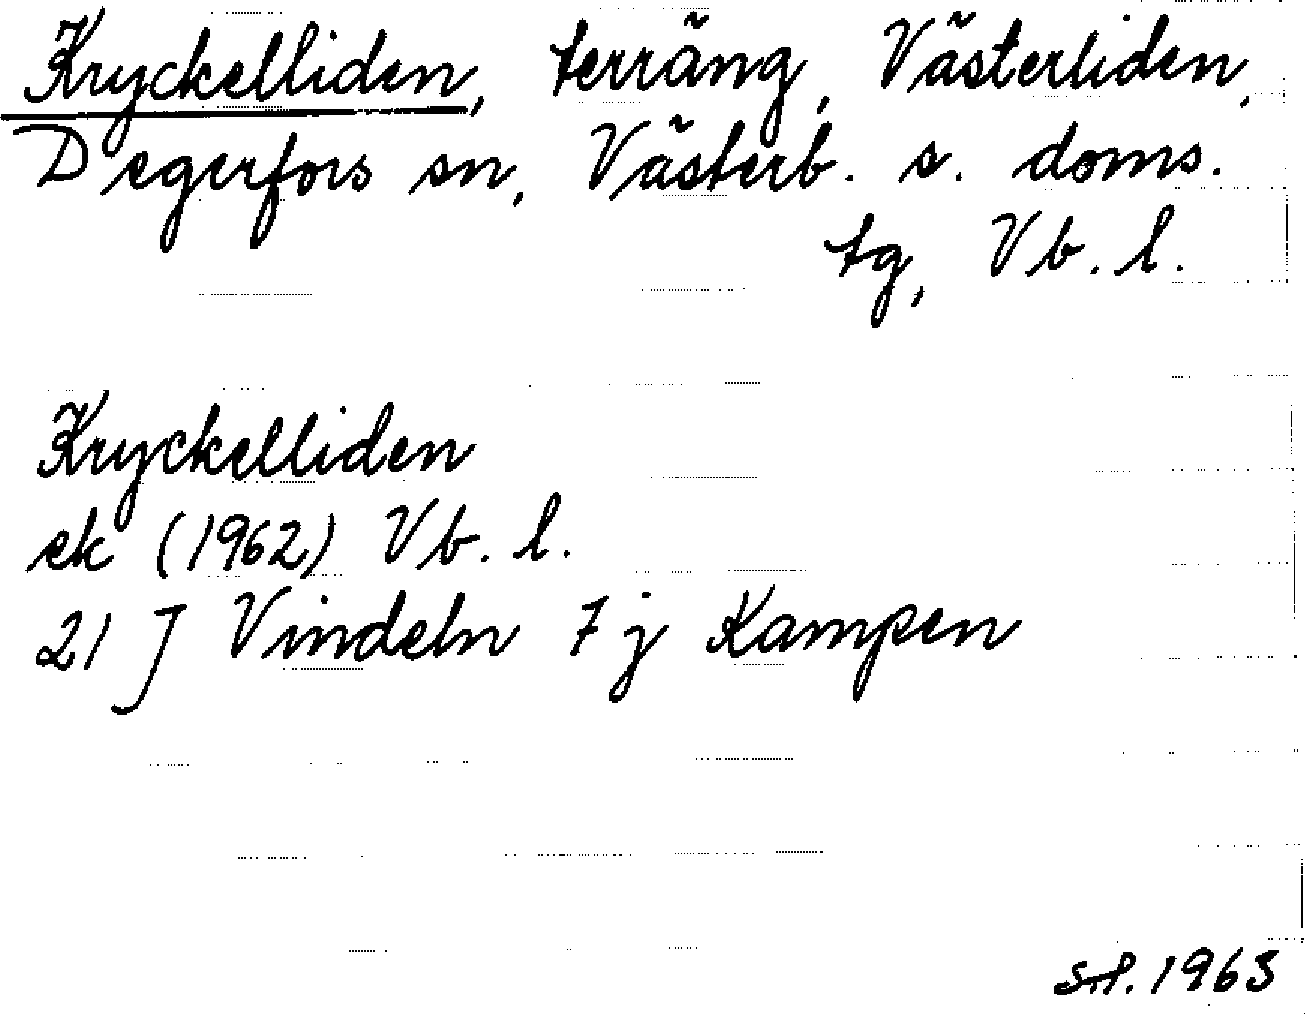 Kryckelliden, terräng, Västerliden,
Degerfors sn, Västerb. s. doms.
tg, Vb. l.
Kryckelliden
ek (1962) Vb. l.
21 J Vindeln 7 j Kampen
1963